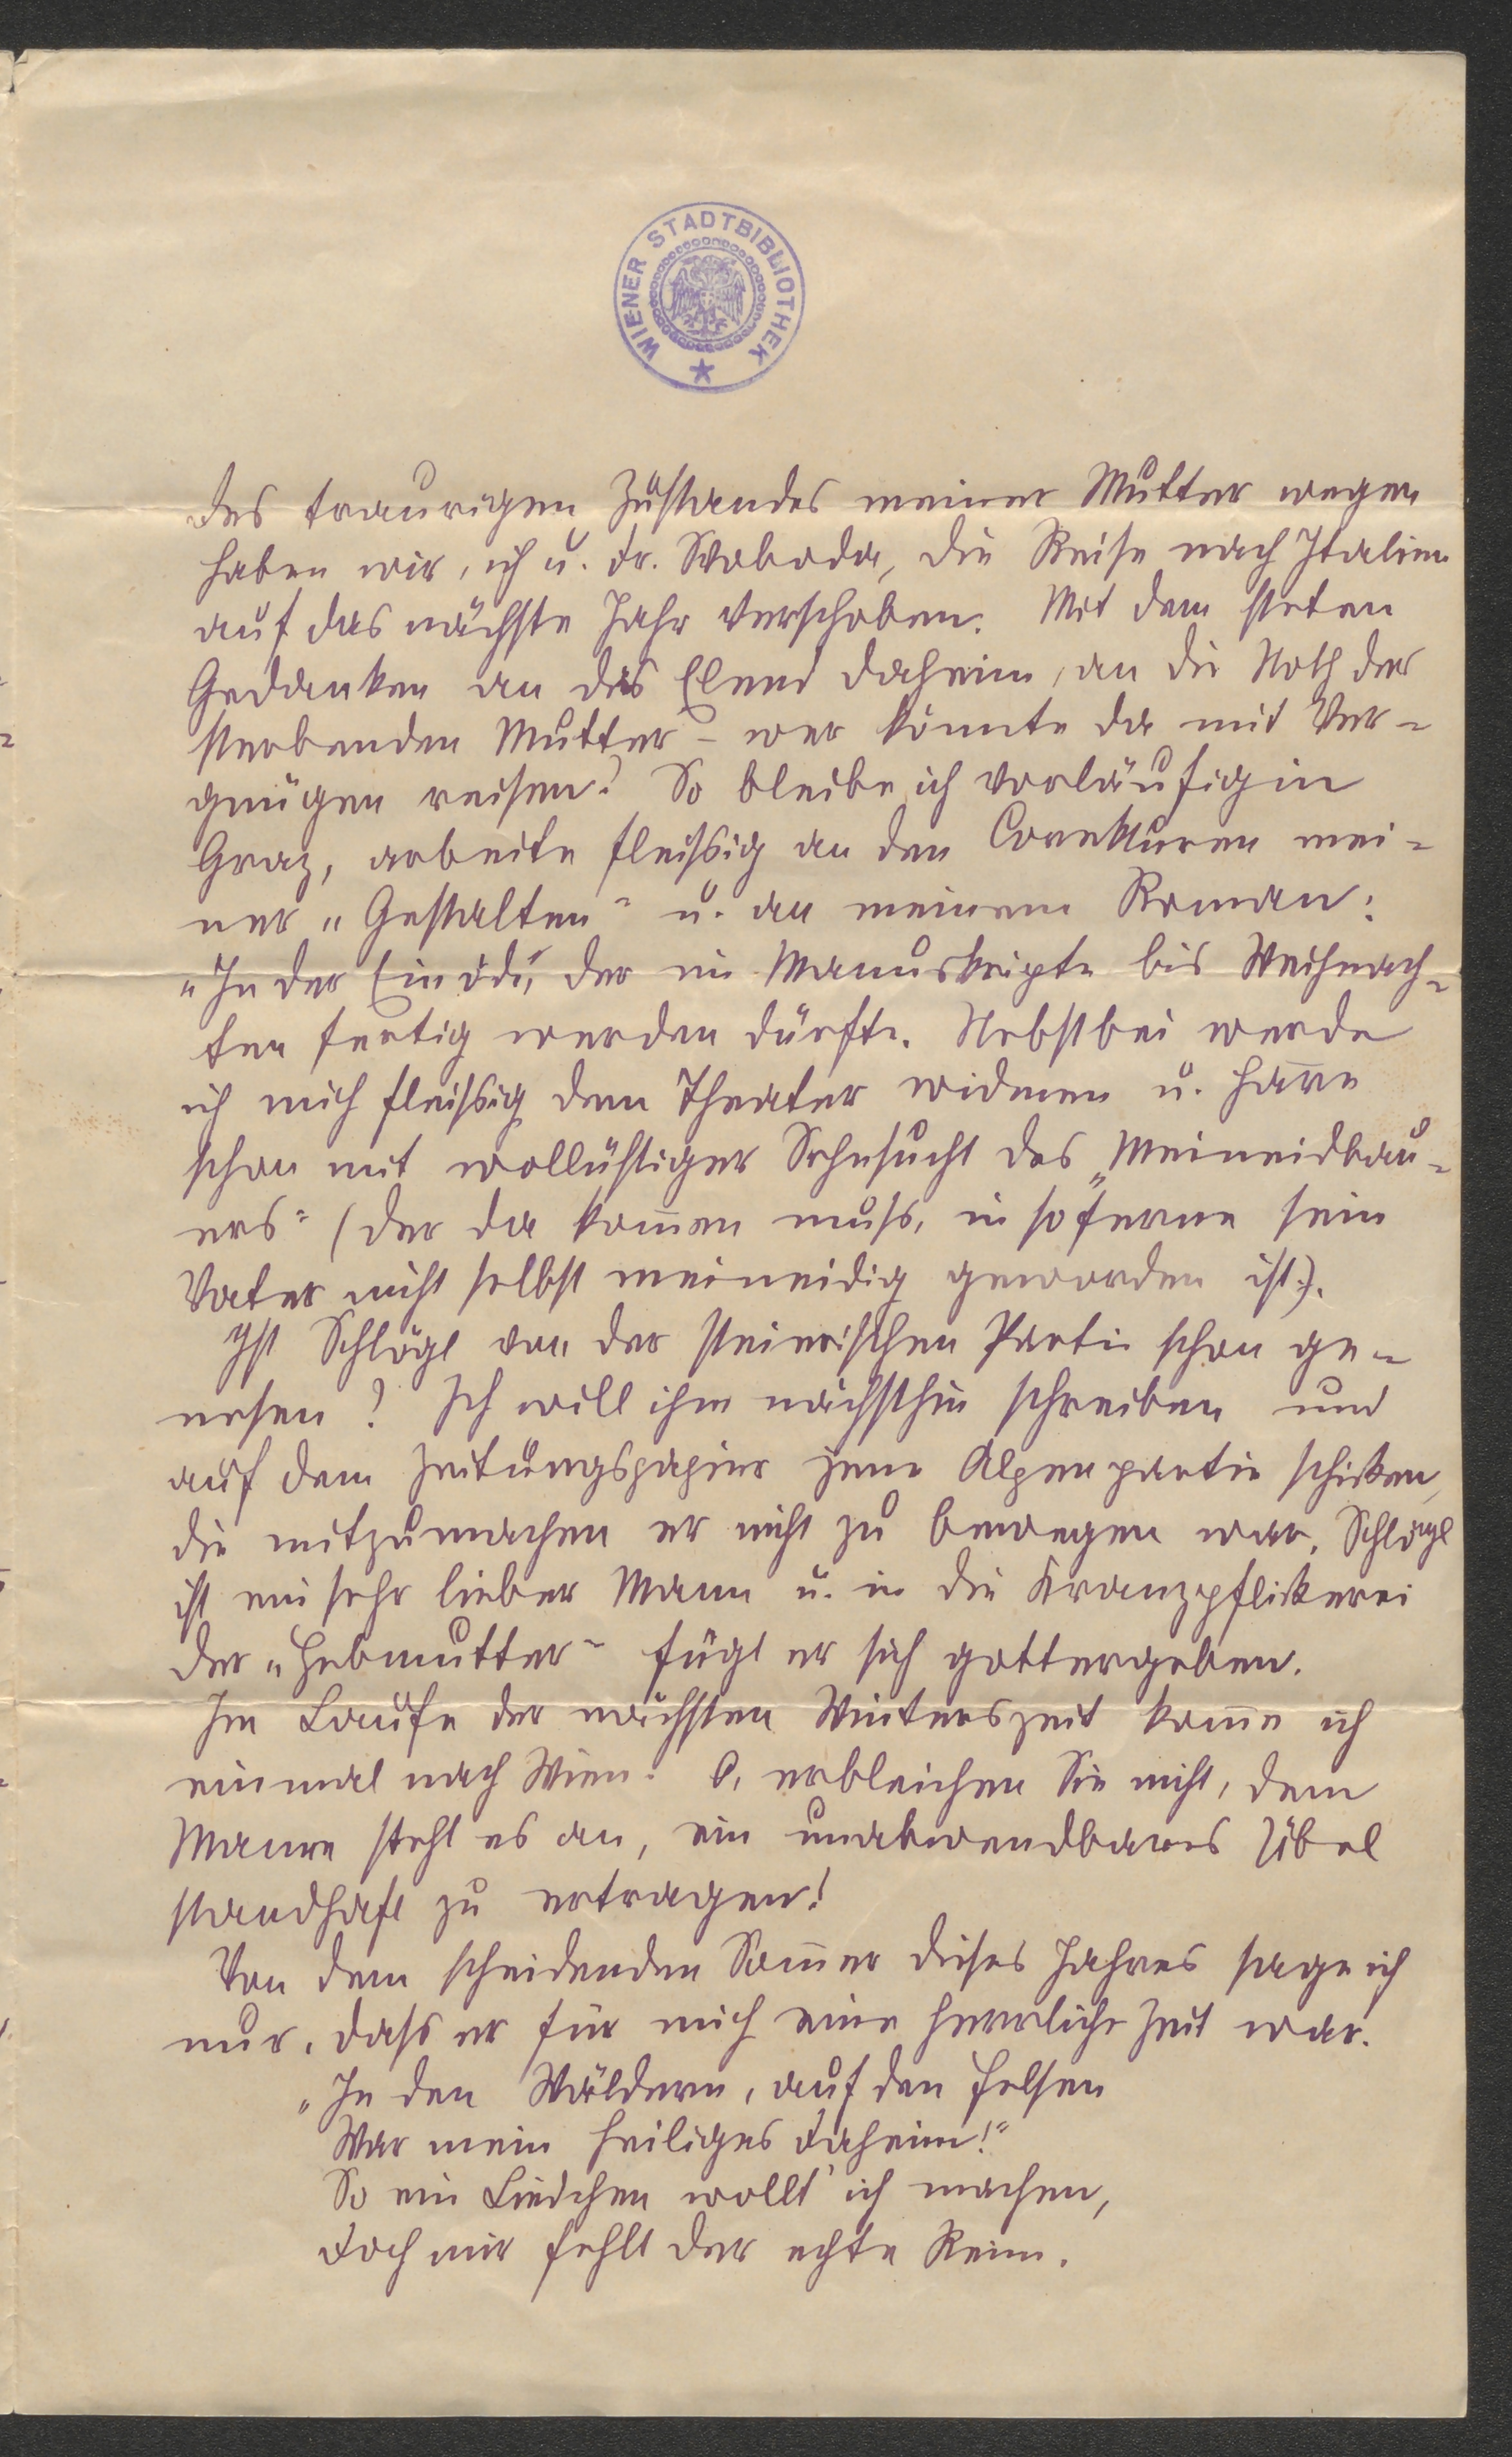 WIENER STADTBIBLIOTHEK
des traurigen Zustandes meiner Mutter wegen
haben wir, ich u. Dr. Svoboda, die Reise nach Italien
auf das nächste Jahr verschoben. Mit dem steten
Gedanken an das Elend daheim, an die Noth der
sterbenden Mutter – wer könnte da mit Ver-
gnügen reisen? So bleibe ich vorläufig in
Graz, arbeite fleißig an den Correkturen mei-
ner „Gestalten“ u. an meinem Roman:
„In der Einöde“, der im Manuskripte bis Weihnach-
ten fertig werden dürfte. Nebstbei werde
ich mich fleißig dem Theater widmen u. harre
schon mit wollüstiger Sehnsucht des „Meineidbau-
ers“ (der da kom̄en muß, in soferne sein
Vater nicht selbst meineidig geworden ist).
Ist Schlögl von der steierischen Partie schon ge-
nesen? Ich will ihm nächsthin schreiben und
auf dem Zeitungspapier jene Alpenpartie schicken,
die mitzumachen er nicht zu bewegen war. Schlögl
ist ein sehr lieber Mann u. in die Kranzpflückerei
der „Hebmutter“ fügt er sich gottergeben.
Im Laufe der nächsten Winterszeit kom̄e ich
einmal nach Wien. O, erbleichen Sie nicht, dem
Manne steht es an, ein unabwendbares Übel
standhaft zu ertragen!
Von dem scheidenden Som̄er dieses Jahres sage ich
nur, daß er für mich eine herrliche Zeit war.
„In den Wäldern, auf den Felsen
War mein heiliges Daheim!“
So ein Liedchen wollt' ich machen,
Doch mir fehlt der echte Reim.